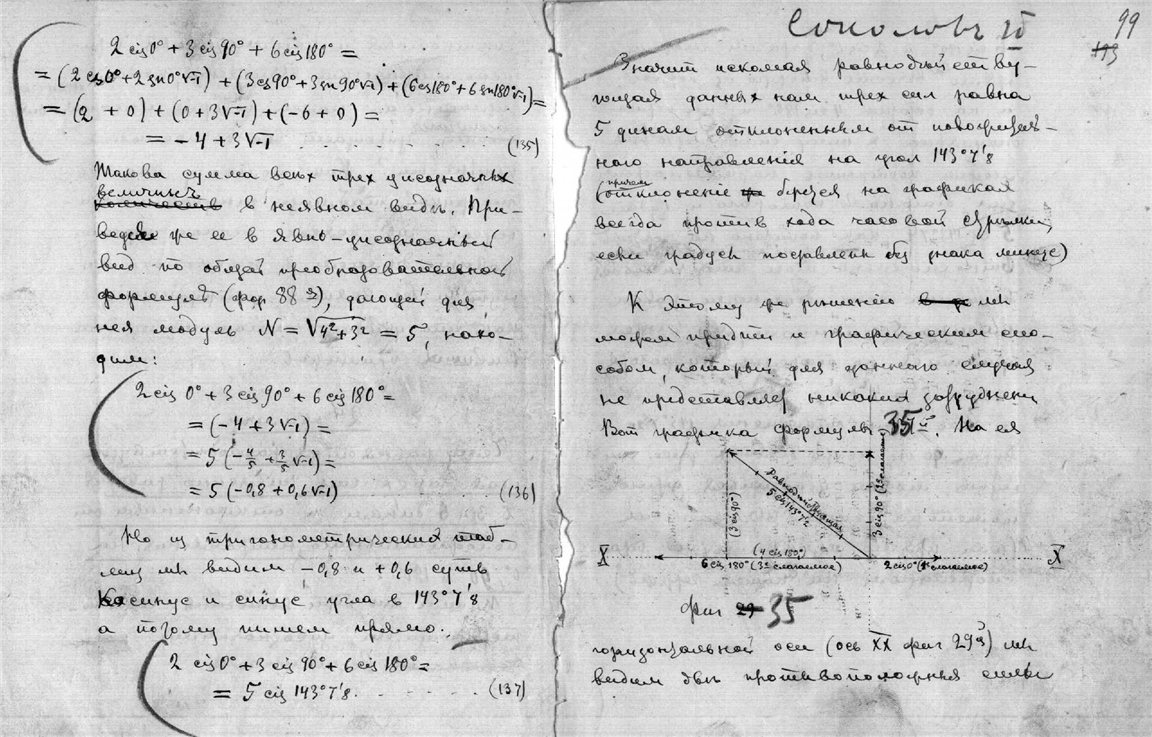 2 cis 0° + 3 cis 90° + 6 cis 180° =
= (2 cos 0° + 2 sn 0° √-1) + (3 cos 90° + 3 sn 90° √-1) + (6 cos 180° + 6 sn 180° √-1) =
= (2 + 0) + (0 + 3√-1) + (-6 + 0) =
= -4 + 3√-1 (135)
Такова сумма всех трех численных
величинъ
в неявном виде. При-
ведя же ее в явно-численный
вид по общей преобразовательной
формуле (фор 88), дающей для
нея модуль N = √4²+3² = 5, нахо-
дим:
2 cis 0° + 3 cis 90° + 6 cis 180° =
= (-4 + 3√-1) =
= 5 (-4/5 + 3/5 √-1) =
= 5 (-0,8 + 0,6√-1) (136)
Но из тригонометрических таб-
лиц мы видим -0,8 и +0,6 суть
косинус и синус угла в 143°7'8
а потому пишем прямо:
2 cis 0° + 3 cis 90° + 6 cis 180° =
= 5 cis 143°7'8 (137)
99
113
Значит искомая равнодействую-
щая данных нам трех сил равна
5 динам отклоненным от
направления на угол 143°7'8
(причем отклонение берется на графиках
всегда против хода часовой стрелки,
если градусы поставлены без знака минус)
К этому решению мы
можем придти и графическим спо-
собом, который для данного случая
не представляет никаких затруднений
Вот графика формулы 35. На ея
Равнодействующая
5 cis 143°7'8
(3 cis 90°)
3 cis 90° (2е слагаемое)
X
(4 cis 180°)
6 cis 180° (3е слагаемое)
2 cis 0° (1е слагаемое)
X
Фиг 29 35
горизонтальной оси (ось XX фиг 29й) мы
видим две противоположныя силы